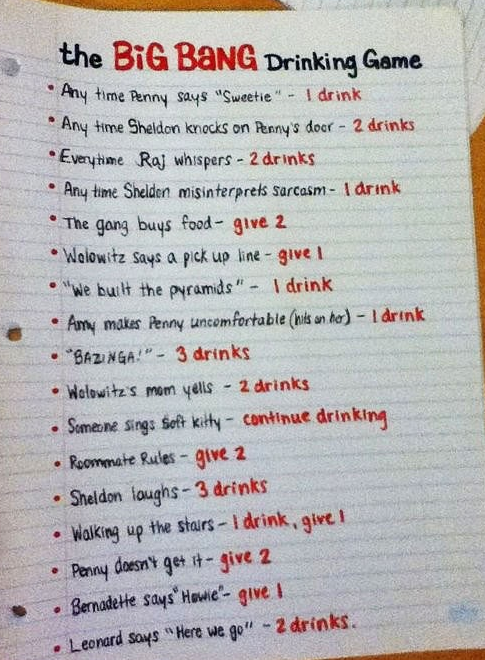 the BiG BaNG Drinking Game
• Any time Penny says "Sweetie" - 1 drink
• Any time Sheldon knocks on Penny's door - 2 drinks
• Everytime Raj whispers - 2 drinks
• Any time Sheldon misinterprets sarcasm - 1 drink
• The gang buys food - give 2
• Wolowitz says a pick up line - give 1
• "We built the pyramids" - 1 drink
• Amy makes Penny uncomfortable (hits on her) - 1 drink
• "BAZINGA!" - 3 drinks
• Wolowitz's mom yells - 2 drinks
• Someone sings Soft kitty - continue drinking
• Roommate Rules - give 2
• Sheldon laughs - 3 drinks
• Walking up the stairs - 1 drink, give 1
• Penny doesn't get it - give 2
• Bernadette says "Howie" - give 1
• Leonard says "Here we go" - 2 drinks.